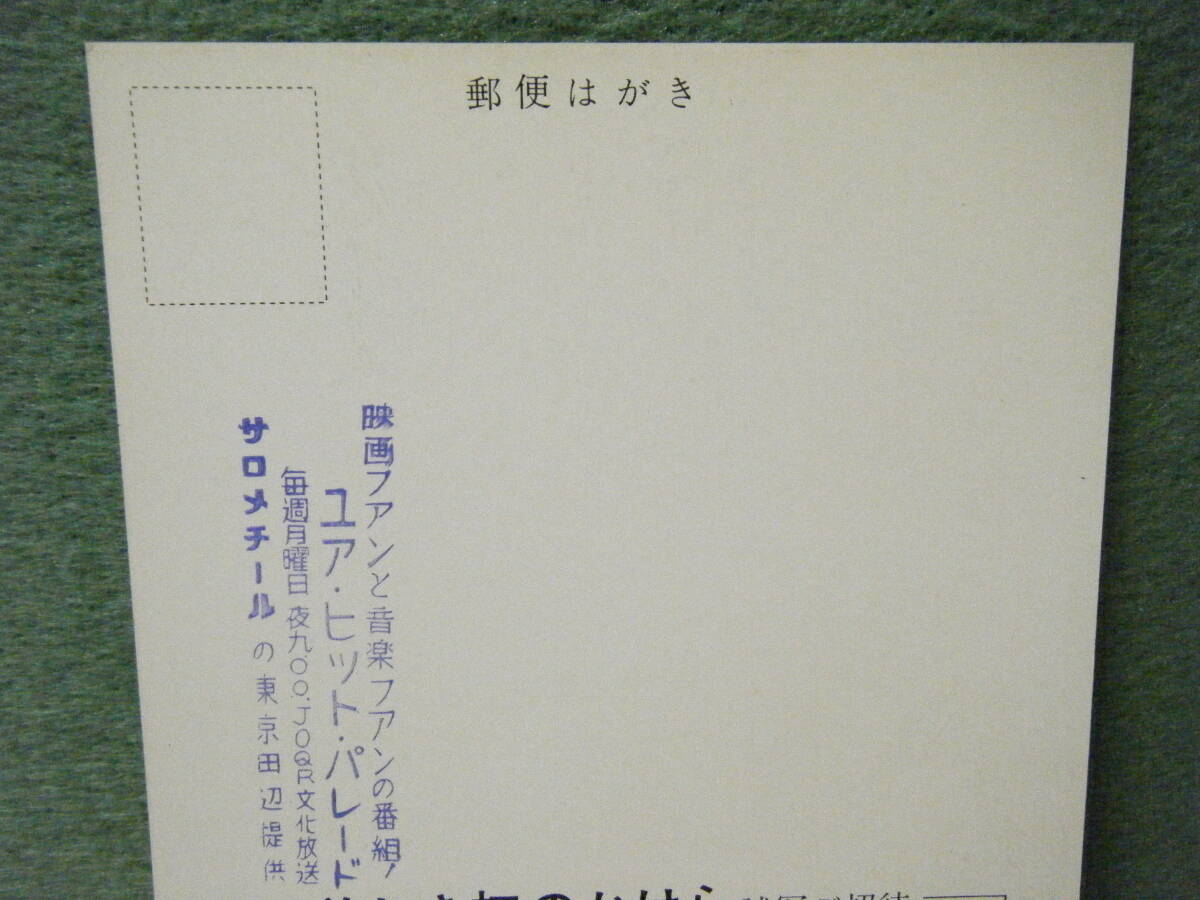 郵便はがき
映画フアンと音楽フアンの番組!
ユア・ヒット・パレード
毎週月曜日 夜九.〇〇.JOQR文化放送
サロメチールの東京田辺提供